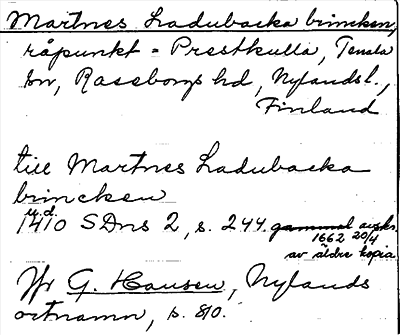 Martnes Ladubacka brincken,
råpunkt = Prestkulla, Tenala
sn, Raseborgs hd, Nylands l.,
Finland
till Martnes Ladubacka
brincken
u.d.
1410 SDns 2, s. 244 gammal avskr.
1662 20/4
av äldre kopia
Jfr G. Hausen, Nylands
ortnamn, s. 810.